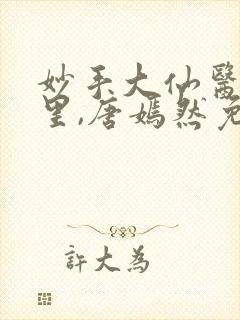 妙手大仙醫
里,唐嫣然免
許大為